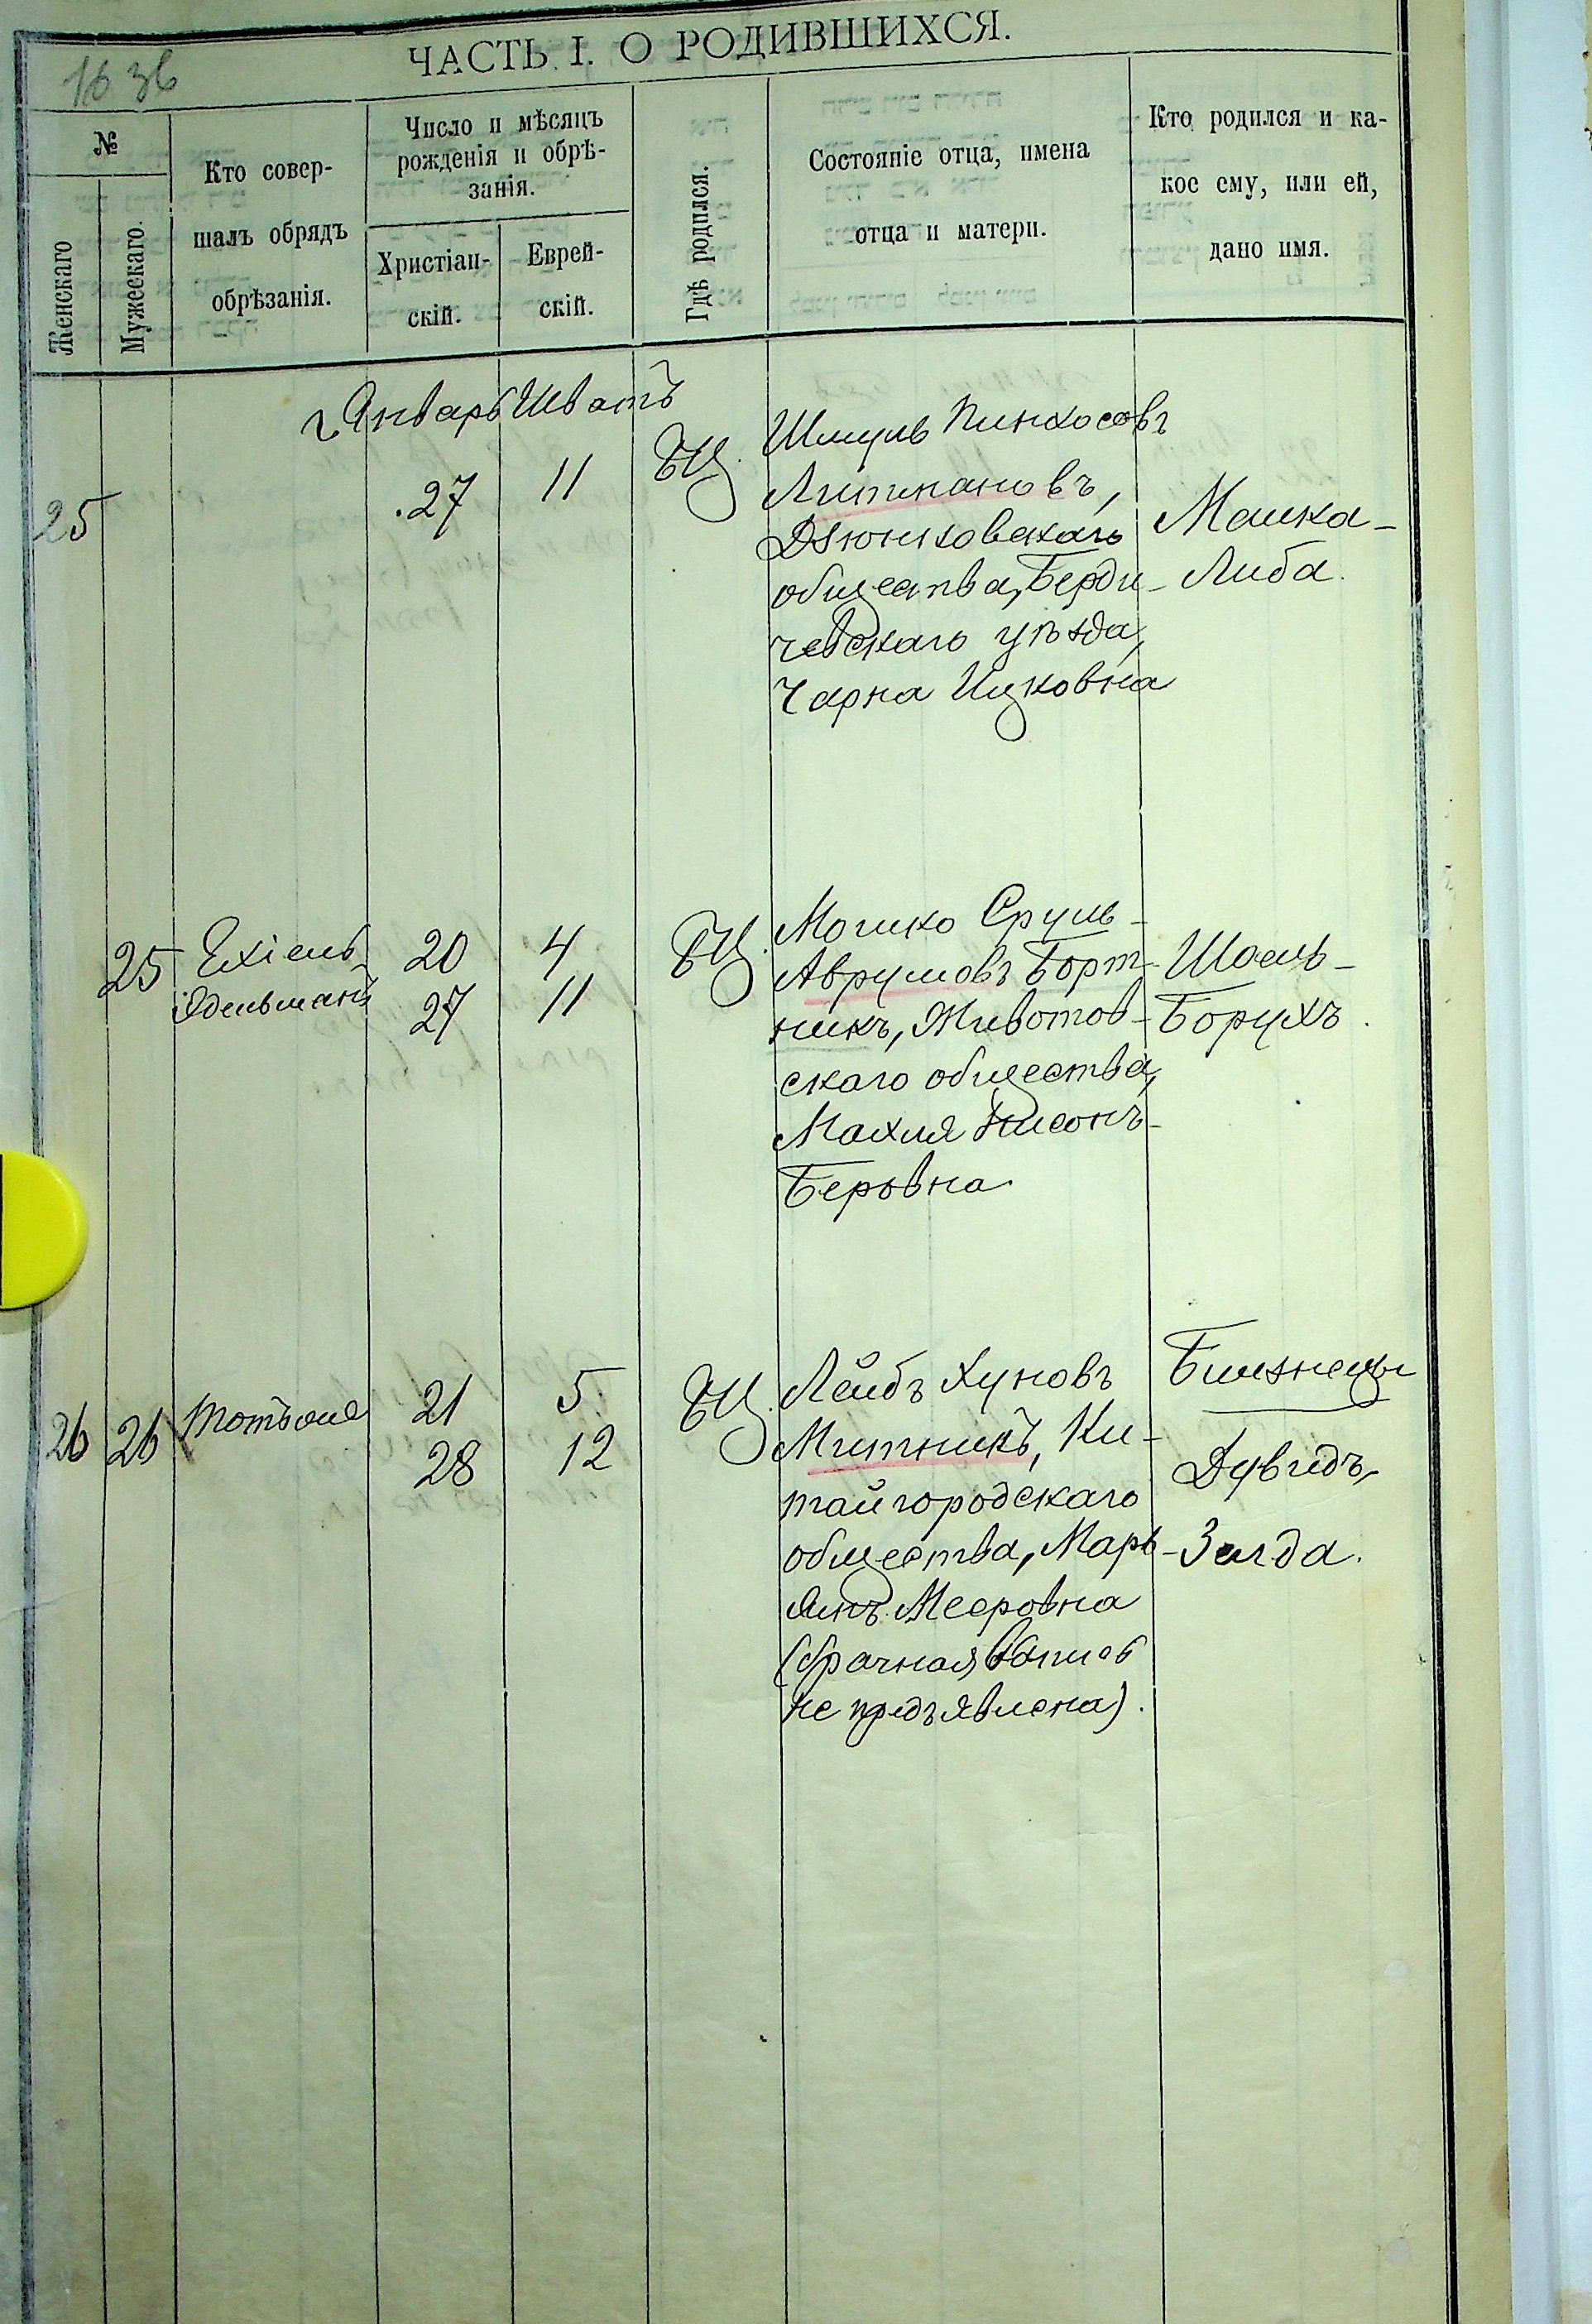 16 36
ЧАСТЬ I. О РОДИВШИХСЯ.
№
Женскаго
Мужескаго.
Кто совер-
шалъ обрядъ
обрѣзанія.
Число и мѣсяцъ
рожденія и обрѣ-
занія.
Христіан-
скій.
Еврей-
скій.
Гдѣ родился.
Состояніе отца, имена
отца и матери.
Кто родился и ка-
кое ему, или ей,
дано имя.
Январь Шватъ
25
27
11
БЦ.
Шмуль Пинхосовъ
Литмановъ,
Дзюнковскаго
общества, Берди-
чевскаго уѣзда,
Чарна Ицковна
Машка-
Либа.
25
Ехіель
Эдельманъ
20
27
4
11
БЦ.
Мошко Сруль-
Аврумовъ Борт-
никъ, Животов-
скаго общества,
Махля Нисонъ-
Беровна
Шоель-
Борухъ.
26
26
21
28
5
12
БЦ.
Лейбъ Хуновъ
Митникъ, Ки-
тайгородскаго
общества, Марь-
Меeровна
(брачная запись
не предъявлена).
Близнецы
Дувидъ,
Злда.